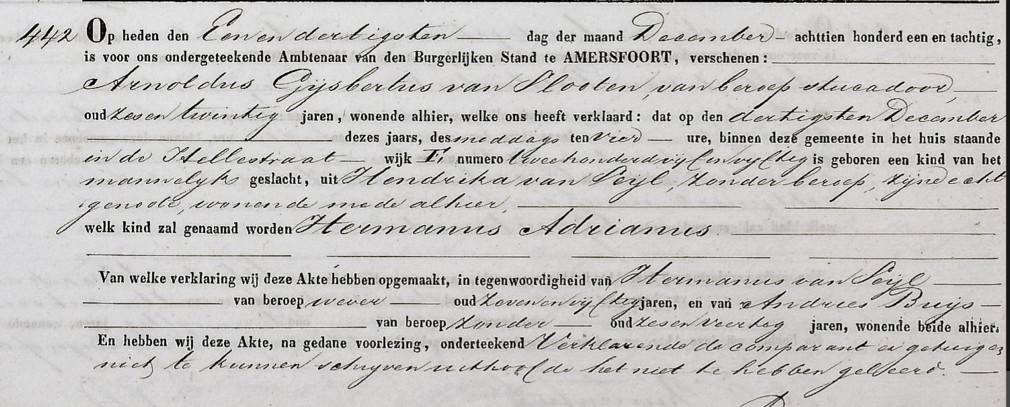 442 Op heden den Een en dertigsten dag der maand December achttien honderd een en tachtig,
is voor ons ondergeteekende Ambtenaar van den Burgerlijken Stand te AMERSFOORT, verschenen:
Arnoldus Gijsbertus van Slooten, van beroep stucadoor,
oud zes en twintig jaren, wonende alhier, welke ons heeft verklaard: dat op den dertigsten December
dezes jaars, des middags ten vier ure, binnen deze gemeente in het huis staande
in de Hellestraat wijk F, numero tweehonderd vijf en vijftig is geboren een kind van het
mannelijk geslacht, uit Hendrika van Seijl, zonder beroep, zijnd echt
genoote, wonende mede alhier,
welk kind zal genaamd worden Hermanus Adrianus
Van welke verklaring wij deze Akte hebben opgemaakt, in tegenwoordigheid van Hermanus van Seijl
van beroep wever oud zeven en vijftig jaren, en van Andries Buijs
van beroep zonder oud zes en veertig jaren, wonende beide alhier.
En hebben wij deze Akte, na gedane voorlezing, onderteekend Verklarende de comparant en getuigen
niet te kunnen schrijven uithoofde het niet te hebben geleerd.